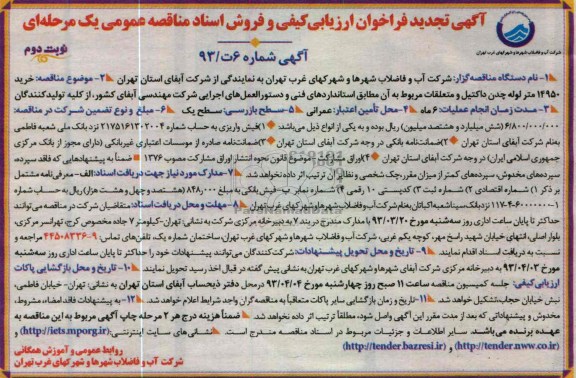 آگهی تجدید فراخوان ارزیابی کیفی و فروش اسناد مناقصه عمومی یک مرحله‌ای
نوبت دوم
آگهی شماره ۶ت/۹۳
شرکت آب و فاضلاب شهرها و شهرکهای غرب تهران
۱- نام دستگاه مناقصه گزار: شرکت آب و فاضلاب شهرها و شهرکهای غرب تهران به نمایندگی از شرکت آبفای استان تهران ۲- موضوع مناقصه: خرید
۱۴۹۵۰ متر لوله چدن داکتیل و متعلقات مربوط به آن مطابق استانداردهای فنی و دستورالعمل‌های اجرایی شرکت مهندسی آبفای کشور، از کلیه تولیدکنندگان
۳- مدت زمان انجام عملیات: ۶ ماه ۴- محل تأمین اعتبار: عمرانی ۵- سطح بازرسی: سطح یک ۶- مبلغ و نوع تضمین شرکت در مناقصه:
۶/۸۰۰/۰۰۰/۰۰۰ (شش میلیارد و هشتصد میلیون) ریال بوده و به یکی از انواع ذیل می‌باشد: ۱) فیش واریزی به حساب شماره ۲۱۷۵۱۶۱۳۰۲۰۰۴ نزد بانک ملی شعبه فاطمی
بنام شرکت آبفای استان تهران ۲) ضمانت‌نامه بانکی در وجه شرکت آبفای استان تهران ۳) ضمانتنامه صادره از موسسات اعتباری غیربانکی (دارای مجوز از بانک مرکزی
جمهوری اسلامی ایران) در وجه شرکت آبفای استان تهران ۴) اوراق مشارکت موضوع قانون نحوه انتشار اوراق مشارکت مصوب ۱۳۷۶ ضمناً به پیشنهادهایی که فاقد سپرده،
سپرده‌های مخدوش، سپرده‌های کمتر از میزان مقرر، چک شخصی و نظایر آن ترتیب اثر داده نخواهد شد. ۷- مدارک مورد نیاز جهت دریافت اسناد: الف- معرفی‌نامه مشتمل
بر ذکر ۱) شماره اقتصادی ۲) شماره ثبت ۳) کدپستی ۱۰ رقمی ۴) شماره نمابر ب- فیش بانکی به مبلغ ۸۴۸٫۰۰۰ (هشتصد و چهل و هشت هزار) ریال به حساب شماره
نزد بانک سینا شعبه اکباتان بنام شرکت آب و فاضلاب شهرها و شهرکهای غرب تهران ۸- مهلت و محل دریافت اسناد: متقاضیان شرکت در مناقصه می‌توانند
حداکثر تا پایان ساعت اداری روز سه‌شنبه مورخ ۹۳/۰۳/۲۰ با مدارک مندرج در بند ۷ به دبیرخانه مرکزی شرکت به نشانی: تهران- کیلومتر ۷ جاده مخصوص کرج، تهرانسر مرکزی،
بلوار اصلی، انتهای خیابان شهید راسخ مهر، کوچه یکم غربی، شرکت آب و فاضلاب شهرها و شهرکهای غرب تهران ساختمان شماره یک، تلفن‌های تماس: ۹-۴۴۵۰۸۳۳۶ مراجعه و
نسبت به دریافت اسناد اقدام نمایند. ۹- تاریخ و محل تحویل پیشنهادات: شرکت‌کنندگان می‌توانند پیشنهادات خود را حداکثر تا پایان ساعت اداری روز سه‌شنبه
مورخ ۹۳/۰۴/۰۳ به دبیرخانه مرکزی شرکت آبفای شهرها و شهرکهای غرب تهران به نشانی پیش گفته در قبال اخذ رسید تحویل نمایند. ۱۰- تاریخ و محل بازگشایی پاکات
ارزیابی کیفی: جلسه کمیسیون مناقصه ساعت ۱۱ صبح روز چهارشنبه مورخ ۹۳/۰۴/۰۴ درمحل دفتر ذیحساب آبفای استان تهران به نشانی: تهران- خیابان فاطمی،
نبش خیابان حجاب، تشکیل خواهد شد. ۱۱- تاریخ و زمان بازگشایی سایر پاکات متعاقباً به مناقصه‌گران واجد شرایط اعلام خواهد شد. ۱۲- به پیشنهادات فاقد امضاء، مشروط،
مخدوش و پیشنهاداتی که بعد از مدت مقرر این آگهی واصل شود، مطلقاً ترتیب اثر داده نخواهد شد. ضمناً هزینه درج هر ۲ مرحله چاپ آگهی مربوط به این مناقصه به
عهده برنده می‌باشد. سایر اطلاعات و جزئیات مربوط در اسناد مناقصه مندرج است. نشانی‌های سایت اینترنتی: (http://iets.mporg.ir) و
(http://tender.nww.co.ir) و (http://tender.bazresi.ir)
روابط عمومی و آموزش همگانی
شرکت آب و فاضلاب شهرها و شهرکهای غرب تهران